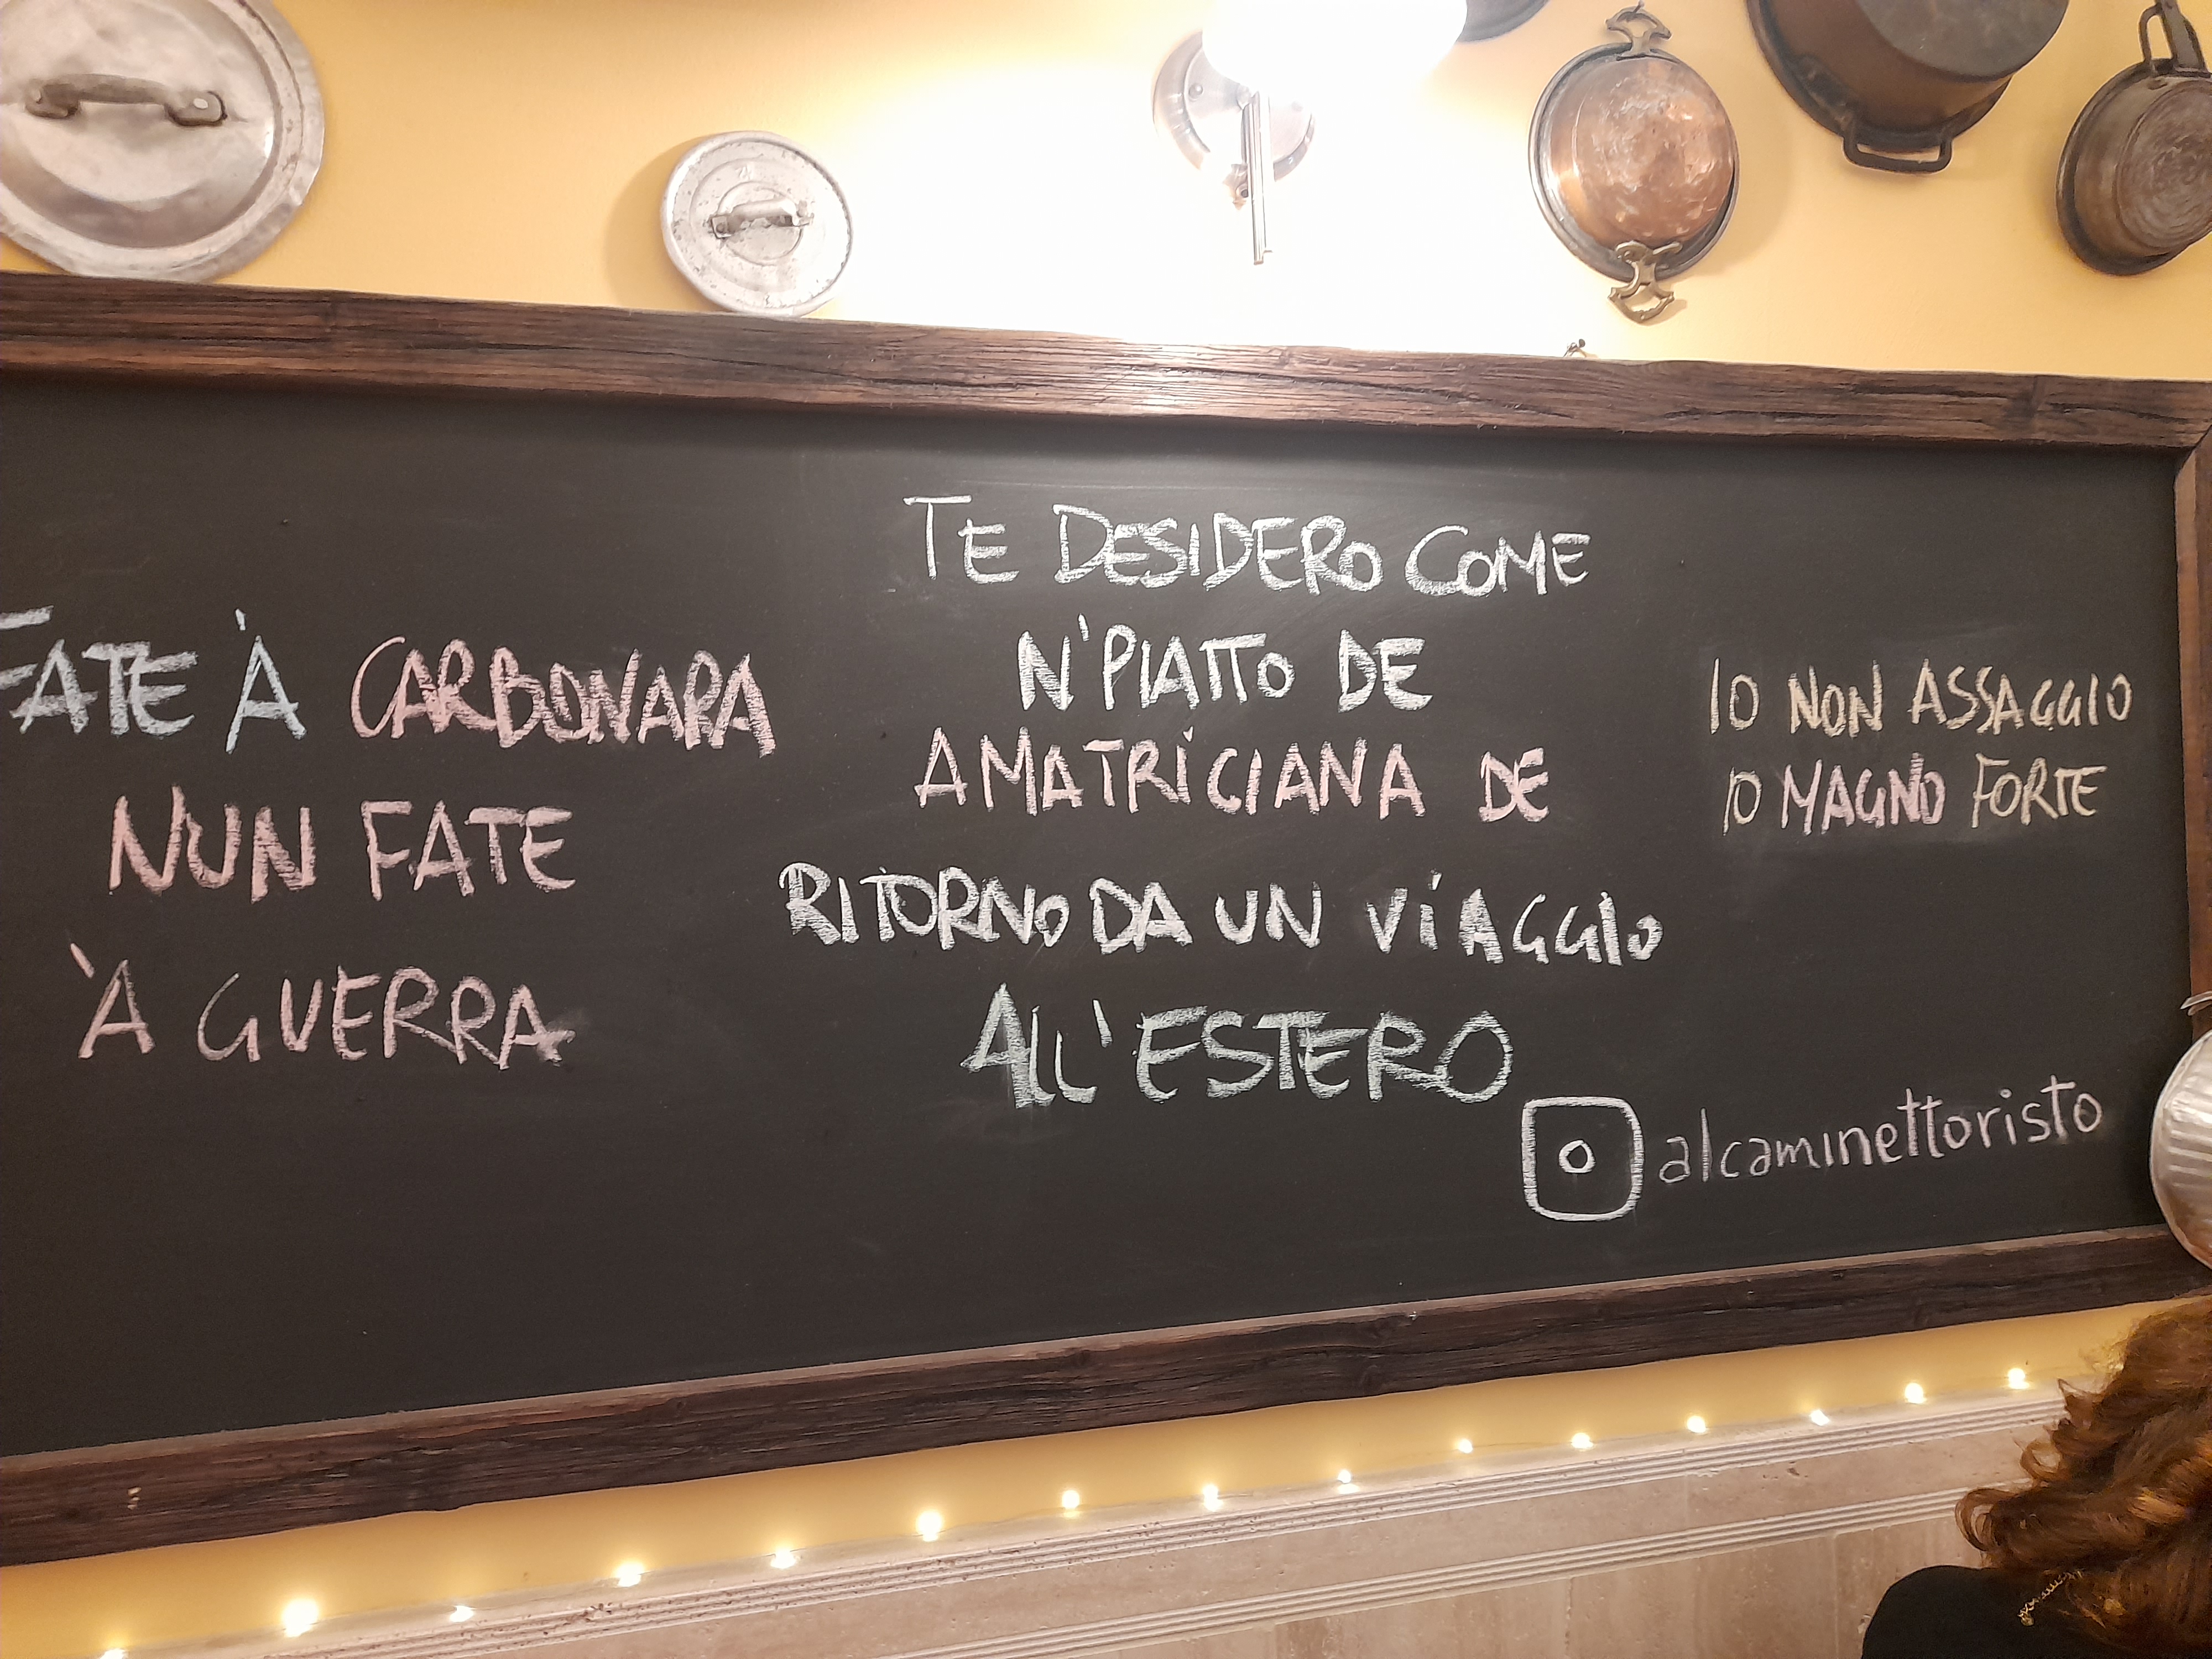 FATE À CARBONARA
NUN FATE
À GUERRA
TE DESIDERO COME
N'PIATTO DE
AMATRICIANA DE
RITORNO DA UN VIAGGIO
ALL'ESTERO
IO NON ASSAGGIO
IO MAGNO FORTE
alcaminettoristo